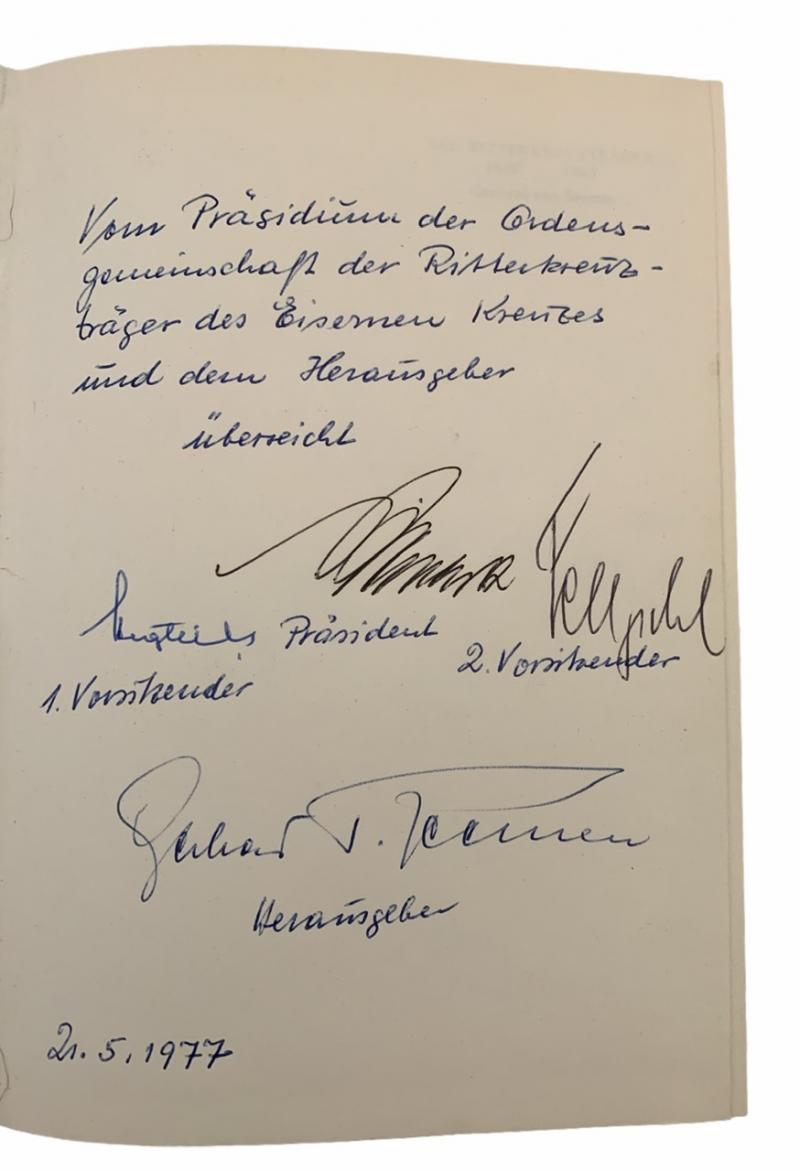 Vom Präsidium der Ordens-
gemeinschaft der Ritterkreuz-
träger des Eisernen Kreuzes
und dem Herausgeber
überreicht
Präsident
2. Vorsitzender
1. Vorsitzender
Gerhard v. Seemen
Herausgeber
21.5.1977